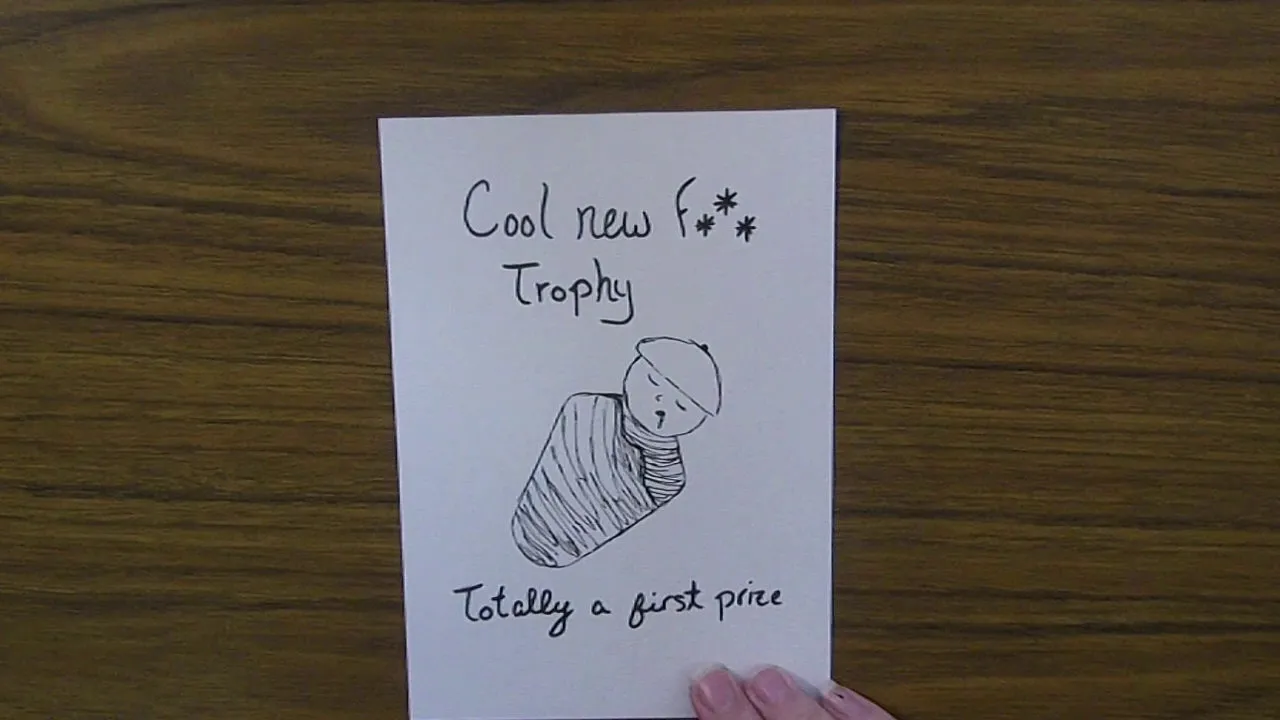 Cool new F***
Trophy
Totally a first prize